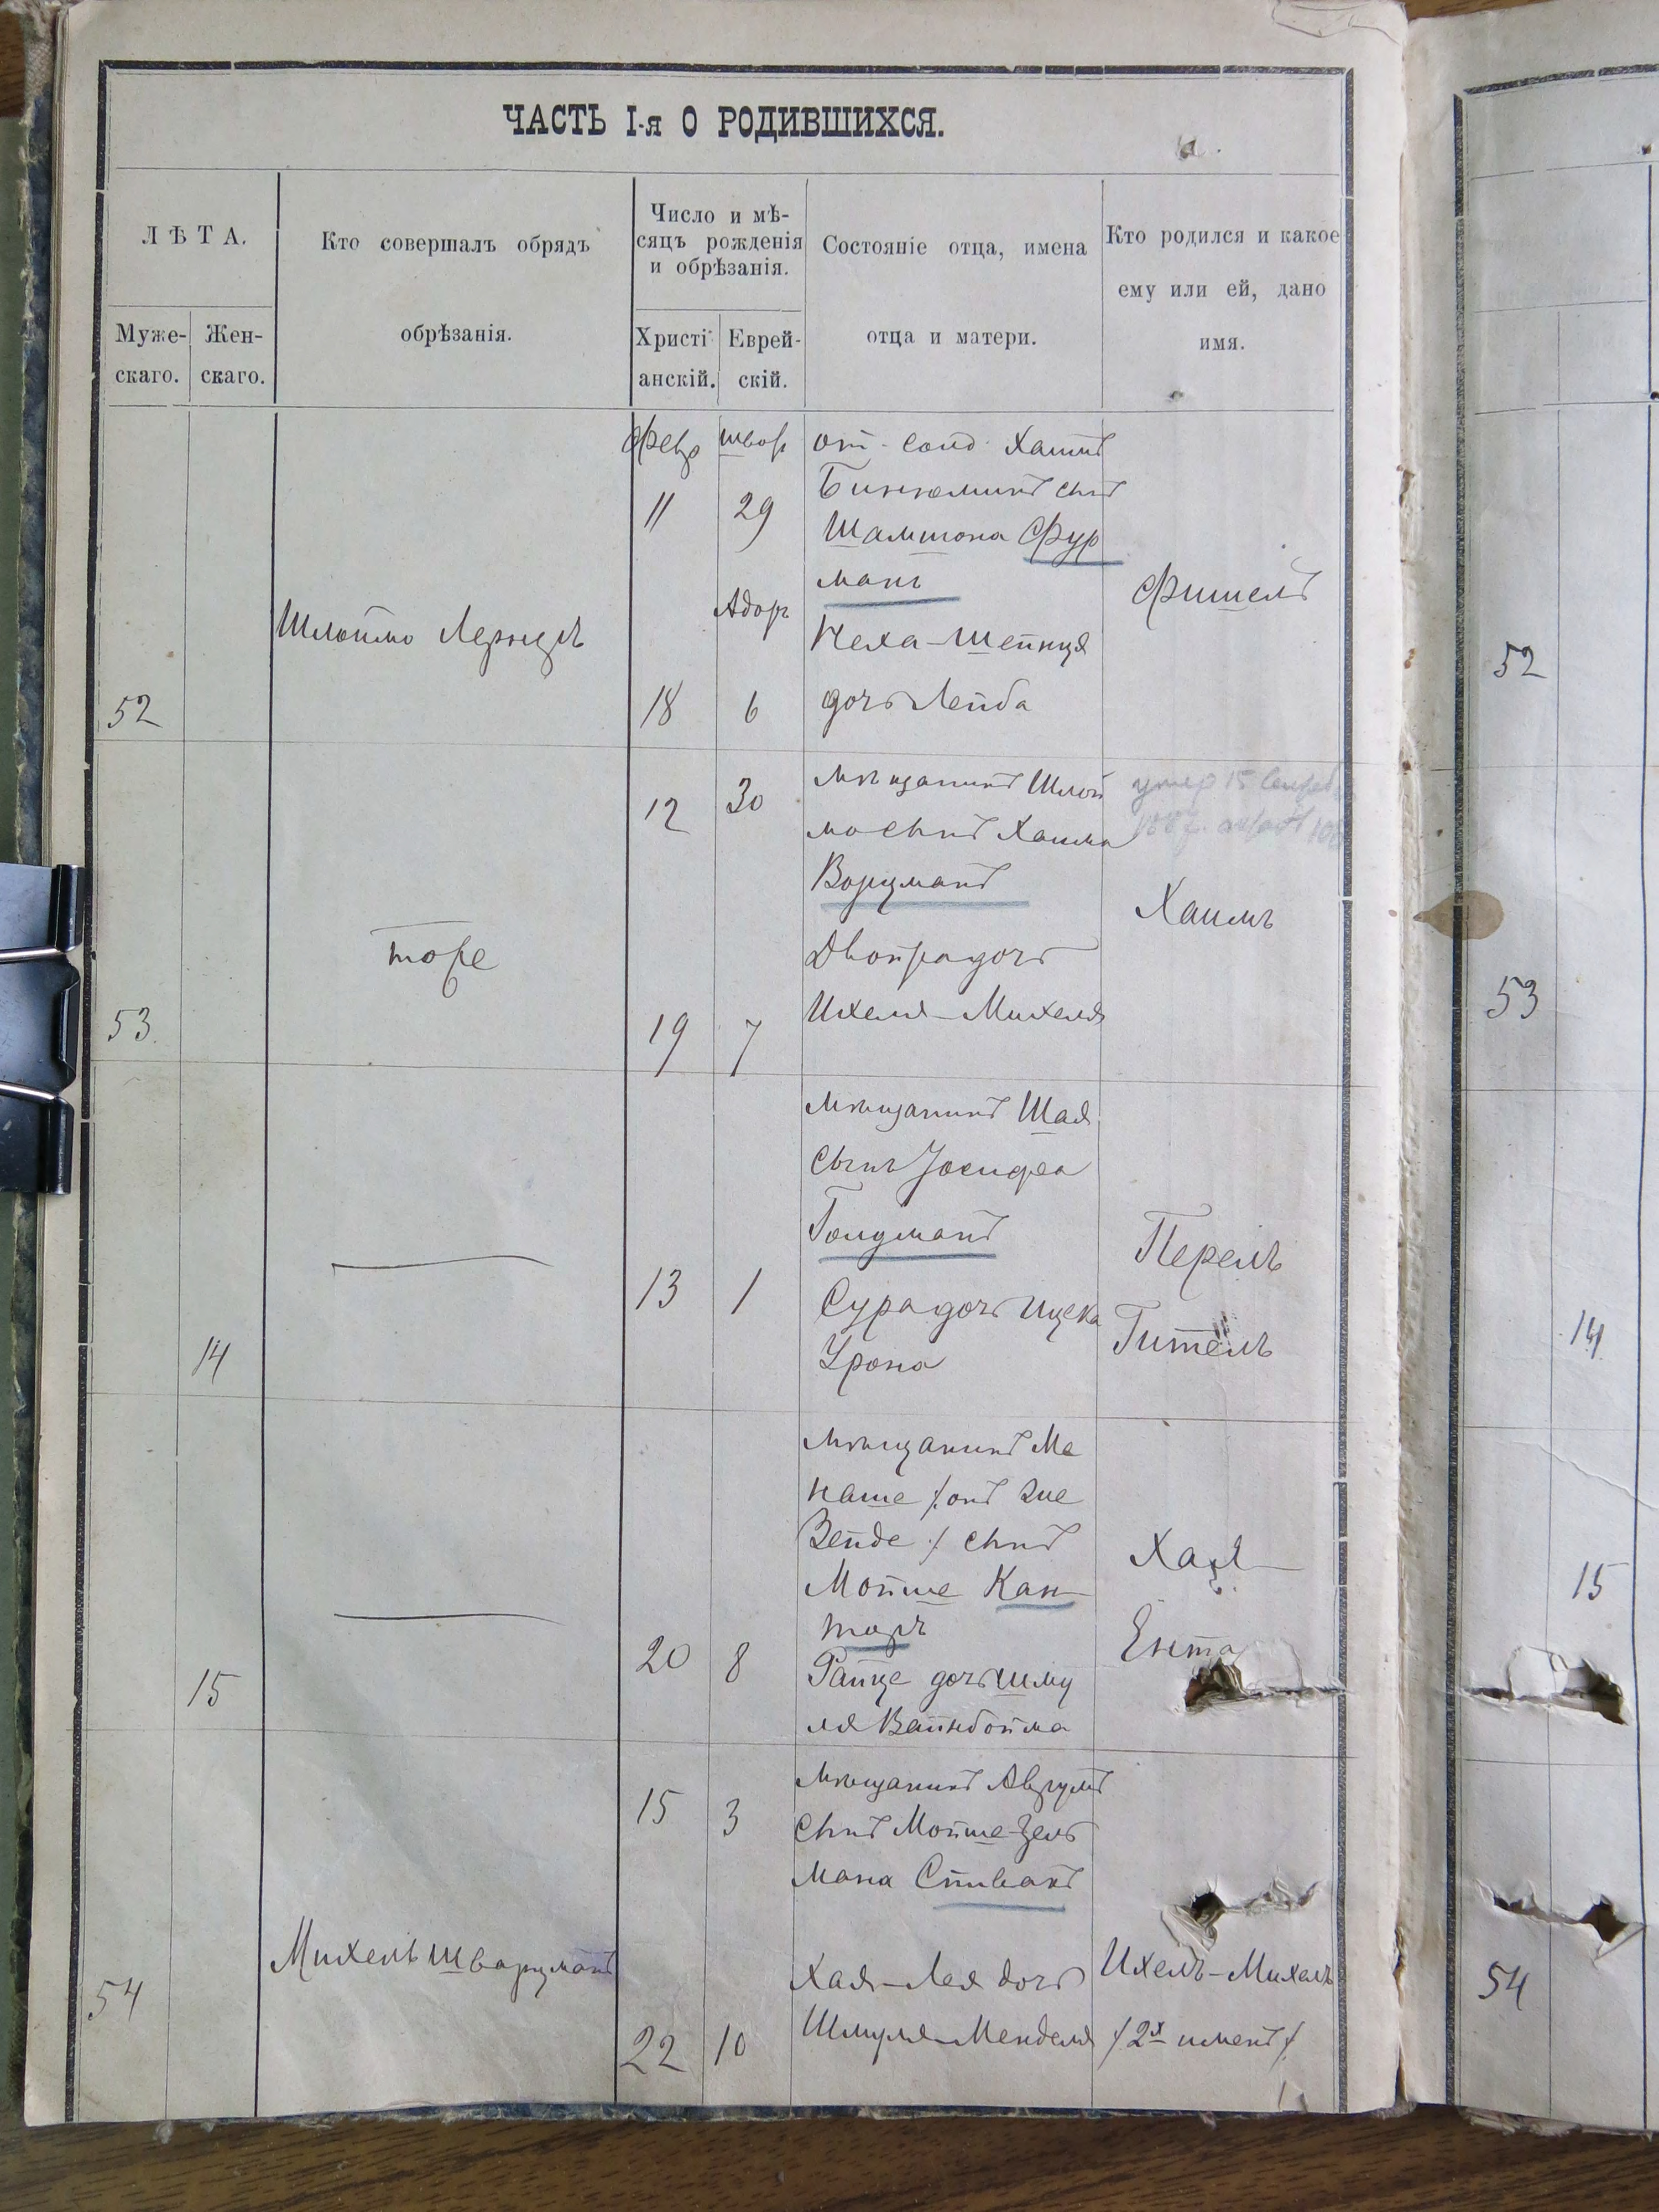 ЧАСТЬ I-я О РОДИВШИХСЯ.
ЛѢТА.
Муже-
скаго.
Жен-
скаго.
Кто совершалъ обрядъ
обрѣзанія.
Число и мѣ-
сяцъ рожденія
и обрѣзанія.
Христі-
анскій.
Еврей-
скій.
Состояніе отца, имена
отца и матери.
Кто родился и какое
ему или ей, дано
имя.
52
Шлоймо
Февр
11
18
29
Адаръ
6
от. солд. Хаимъ
Биньюминъ сынъ
Шамшона Фур
манъ
Неха-Шейнця
дочь Лейба
Фишель
53
тоже
12
19
30
7
мѣщанинъ Шлой
мо сынъ Хаима
Ворцманъ
Двойра дочь
Ихеля-Михеля
умер 15
Хаимъ
14
13
1
мѣщанинъ Шая
сынъ Іосифа
Голдманъ
Сура дочь Ицека
Урона
Перель
Гитель
15
20
8
мѣщанинъ Ме
наше /:онъ же
Зейде:/ сынъ
Мойше Кан
торъ
Райце дочь Шму
ля Вайнбойма
Хая
Ента
54
Михель Шварцманъ
15
22
3
10
мѣщанинъ Аврумъ
сынъ Мойше-Зель
мана Спивакъ
Хая-Лея дочь
Шмуля-Менделя
Ихель-Михель
/:2х именъ:/
52
53
14
15
54